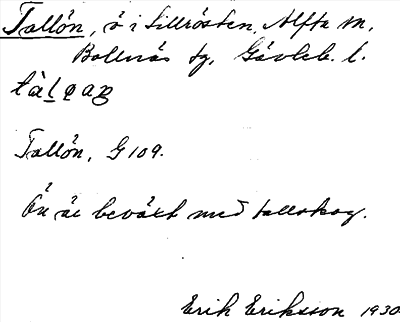 Tallön, ö i Lillrösten, Alfta sn,
Bollnäs tg, Gävleb. l.
Tallön, G 109.
Ön är beväxt med tallskog.
Erik Eriksson 1930